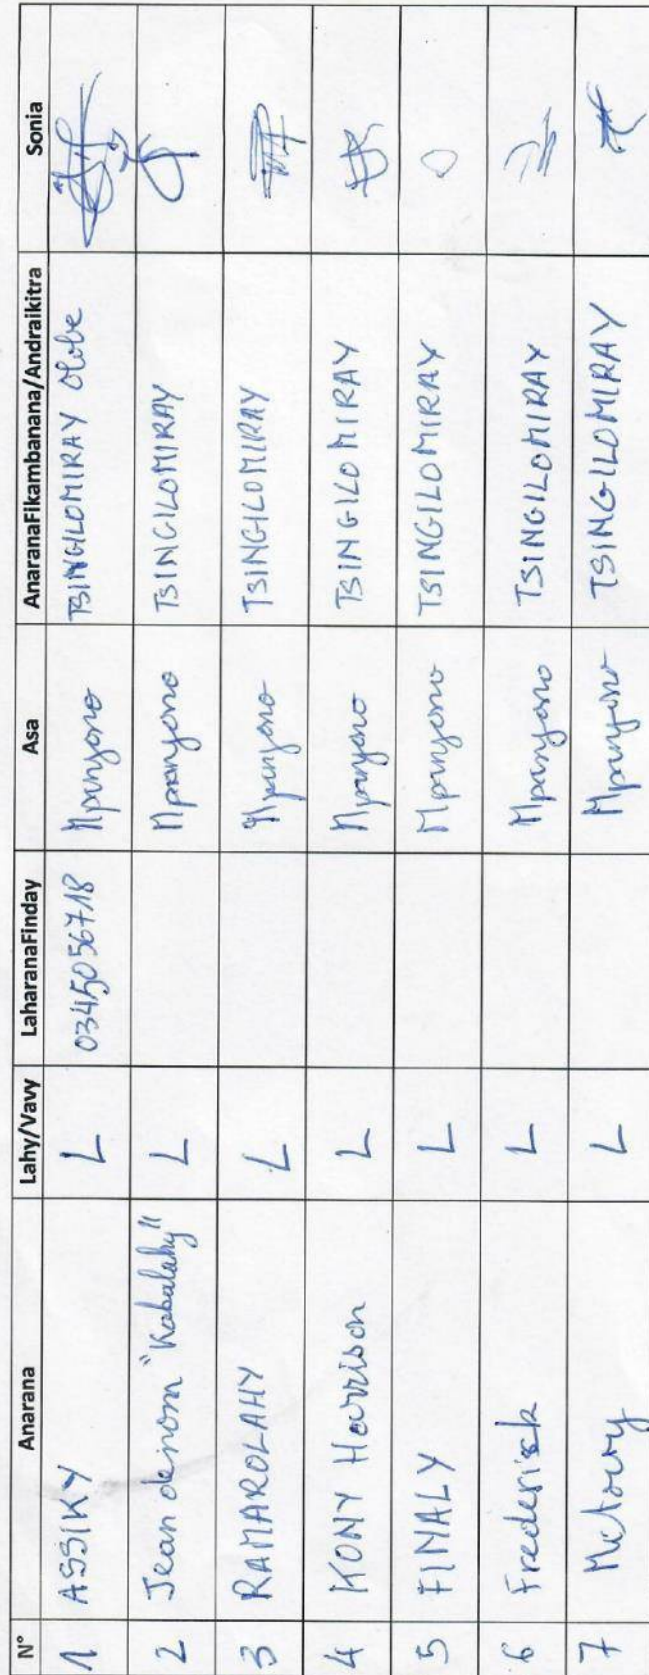 N° Anarana Lahy/Vavy LaharanaFinday Asa AnaranaFikambanana/Andraikitra Sonia
1 ASSIKY L 0345056718 Mpanjono TSINGILOMIRAY Olobe
2 Jean de nom "Kabalahy" L Mpanjono TSINGILOMIRAY
3 RAMAROLAHY L Mpanjono TSINGILOMIRAY
4 KONY Harrison L Mpanjono TSINGILOMIRAY
5 FINALY L Mpanjono TSINGILOMIRAY
6 Frederick L Mpanjono TSINGILOMIRAY
7 L Mpanjono TSINGILOMIRAY